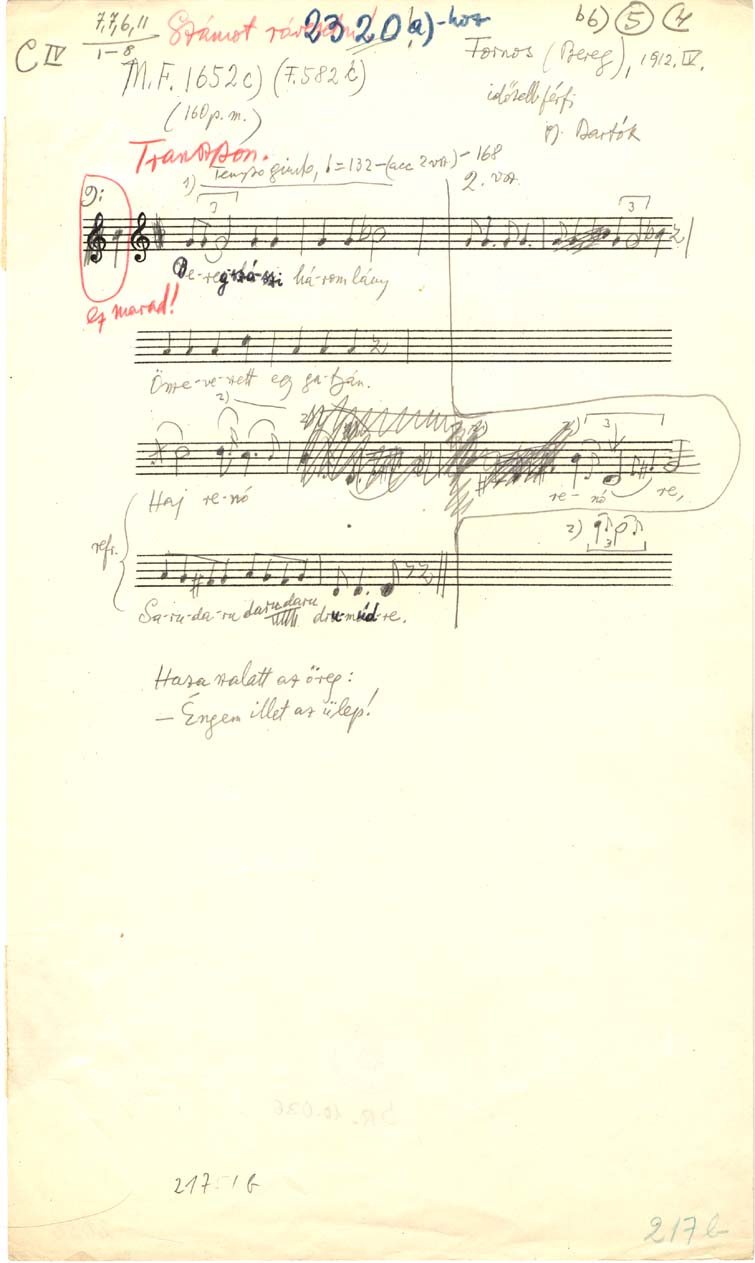 7,7,6,11
1-8
C IV
Számot rávezetni!
2320a)-hoz
b6) 5 4
M.F. 1652c) (F. 582 b)
(160 p.m.)
Fornos (Bereg), 1912. IV.
idősebb férfi
gy. Bartók
Transzpon.
1) Tempo giusto, = 132 - (acc 2 vsz) - 168
2. vsz.
3
3
Be-regszá-szi há-rom lány
ez marad!
Össze-ve-szett egy ga-tyán.
2)
3
Haj re-nó
re-nó re,
2)
3
refr.
Sa-ru-da-ru daru daru dru-mád-re.
Haza szalatt az öreg:
— Éngem illet az ülep!
DR. 10.036
217 b
217 b